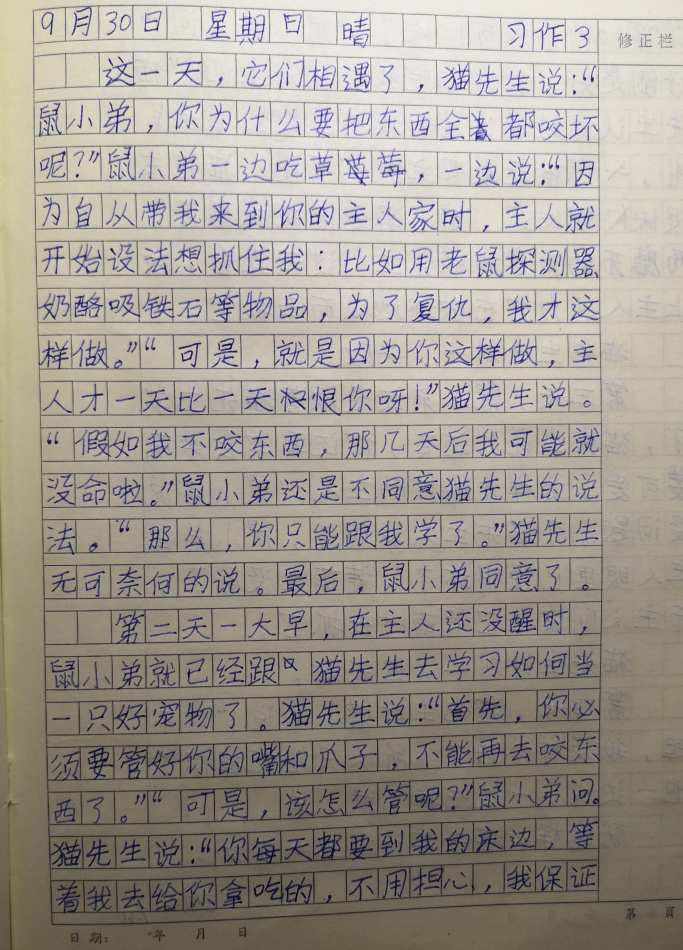 9月30日 星期日 晴 习作3
修正栏
这一天，它们相遇了，猫先生说：“
鼠小弟，你为什么要把东西全都咬坏
呢？”鼠小弟一边吃草莓，一边说：“因
为自从带我来到你的主人家时，主人就
开始设法想抓住我：比如用老鼠探测器
奶酪吸铁石等物品，为了复仇，我才这
样做。”“可是，就是因为你这样做，主
人才一天比一天恨你呀！”猫先生说。
“假如我不咬东西，那几天后我可能就
没命啦。”鼠小弟还是不同意猫先生的说
法。“那么，你只能跟我学了。”猫先生
无可奈何的说。最后，鼠小弟同意了。
第二天一大早，在主人还没醒时，
鼠小弟就已经跟猫先生去学习如何当
一只好宠物了。猫先生说：“首先，你必
须要管好你的嘴和爪子，不能再去咬东
西了。”“可是，该怎么管呢？”鼠小弟问。
猫先生说：“你每天都要到我的床边，等
着我去给你拿吃的，不用担心，我保证
第 页
日期： 年 月 日